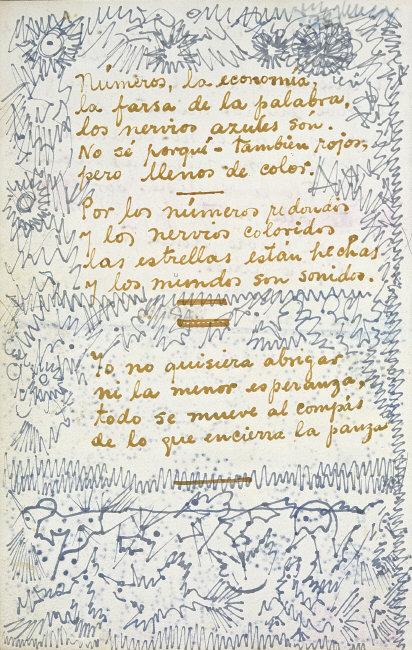 Números, la economía,
la farsa de la palabra,
los nervios azules són.
No sé porquí - también rojos,
pero llenos de color.
Por los números redondos
y los nervios coloridos
las estrellas están hechas
y los mundos son sonidos.
Yo no quisiera abrigar
ni la menor esperanza,
todo se mueve al compás
de lo que encierra la panza